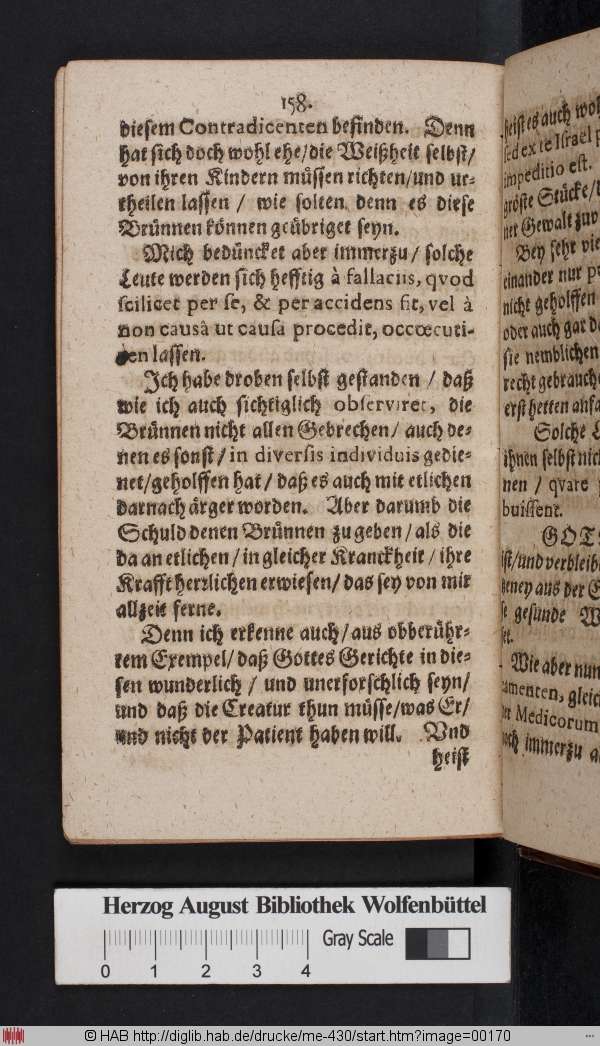 158.
diesem Contradicenten befinden. Denn
hat sich doch wohl ehe/die Weißheit selbst/
von ihren Kindern müssen richten/und ur-
theilen lassen / wie solten denn es diese
Brünnen können geübriget seyn.
Mich bedüncket aber immerzu/ solche
Leute werden sich hefftig à fallaciis, qvod
scilicet per se, & per accidens fit, vel à
non causâ ut causa procedit, occœcuti-
ren lassen.
Ich habe droben selbst gestanden / daß
wie ich auch sichtiglich observiret, die
Brünnen nicht allen Gebrechen/ auch de-
nen es sonst/ in diversis individuis gedie-
net/geholffen hat/ daß es auch mit etlichen
darnach ärger worden. Aber darumb die
Schuld denen Brünnen zu geben/ als die
da an etlichen/ in gleicher Kranckheit / ihre
Krafft herrlichen erwiesen/ das sey von mir
allzeit ferne.
Denn ich erkenne auch/ aus obberühr-
tem Exempel/ daß Gottes Gerichte in die-
sen wunderlich / und unerforschlich seyn/
und daß die Creatur thun müsse/was Er/
und nicht der Patient haben will. Und
heist
heist es auch woh
sed ex te Israel p
impeditio est.
gröste Stücke/ d
net Gewalt zuv
Bey sehr vie
einander nur p
nicht geholffen
oder auch gar d
sie nemblichen
recht gebrauche
erst hetten anfa
Solche L
ihnen selbst nich
nen / qvare p
buissent.
GOT
ist/und verbleib
tzeney aus der E
gesunde W
set.
Wie aber nun
amenten, gleic
Medicorum
noch immerzu a
Herzog August Bibliothek Wolfenbüttel
Gray Scale
0 1 2 3 4
© HAB http://diglib.hab.de/drucke/me-430/start.htm?image=00170